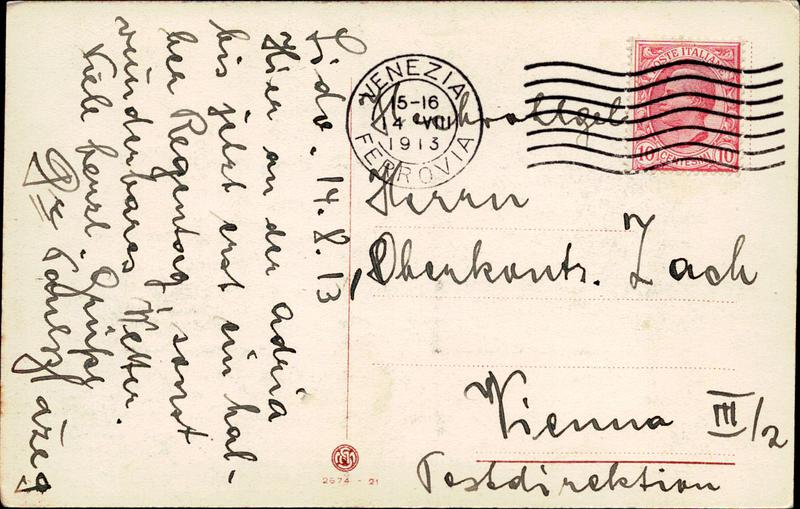 Lido. 14.8.13
Hier an der Adria
bis jetzt erst ein hal-
ber Regentag, sonst
wunderbares Wetter.
Viele herzl. Grüße
VENEZIA
15-16
14 VIII
1913
FERROVIA
POSTE ITALIANE
10 CENTESIMI 10
Herrn
Oberkontr. Zach
Vienna III/2
Postdirektion
2674 - 21